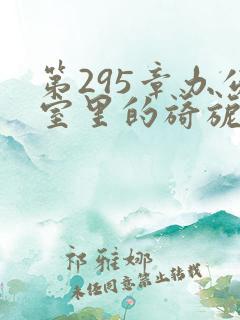 第295章办公
室里的旖旎
祁雅娜
未经同意禁止转载